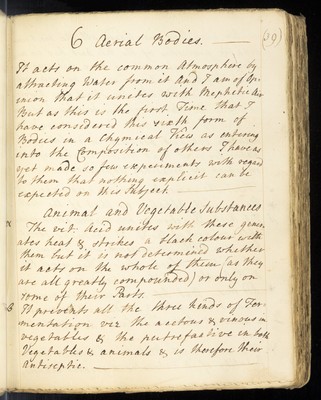 6 Aerial Bodies. (39)
It acts on the common Atmosphere by
attracting Water from it and I am of Op-
inion that it unites with Mephitic Air
But as this is the first Time that I
have considered this sixth form of
Bodies in a Chymical View as entering
into the Composition of others I have as
yet made so few experiments with regard
to them that nothing explicit can be
expected on this Subject.
Animal and Vegetable Substances
The vit: Acid unites with these gener
ates heat & strikes a black colour with
them but it is not determined whether
it acts on the whole of them (as they
are all greatly compounded) or only on
some of their Parts.
It prevents all the three kinds of Fer-
mentation viz the acetous & vinous in
vegetables & the putrefactive in both
Vegetables & animals & is therefore their
antiseptic.